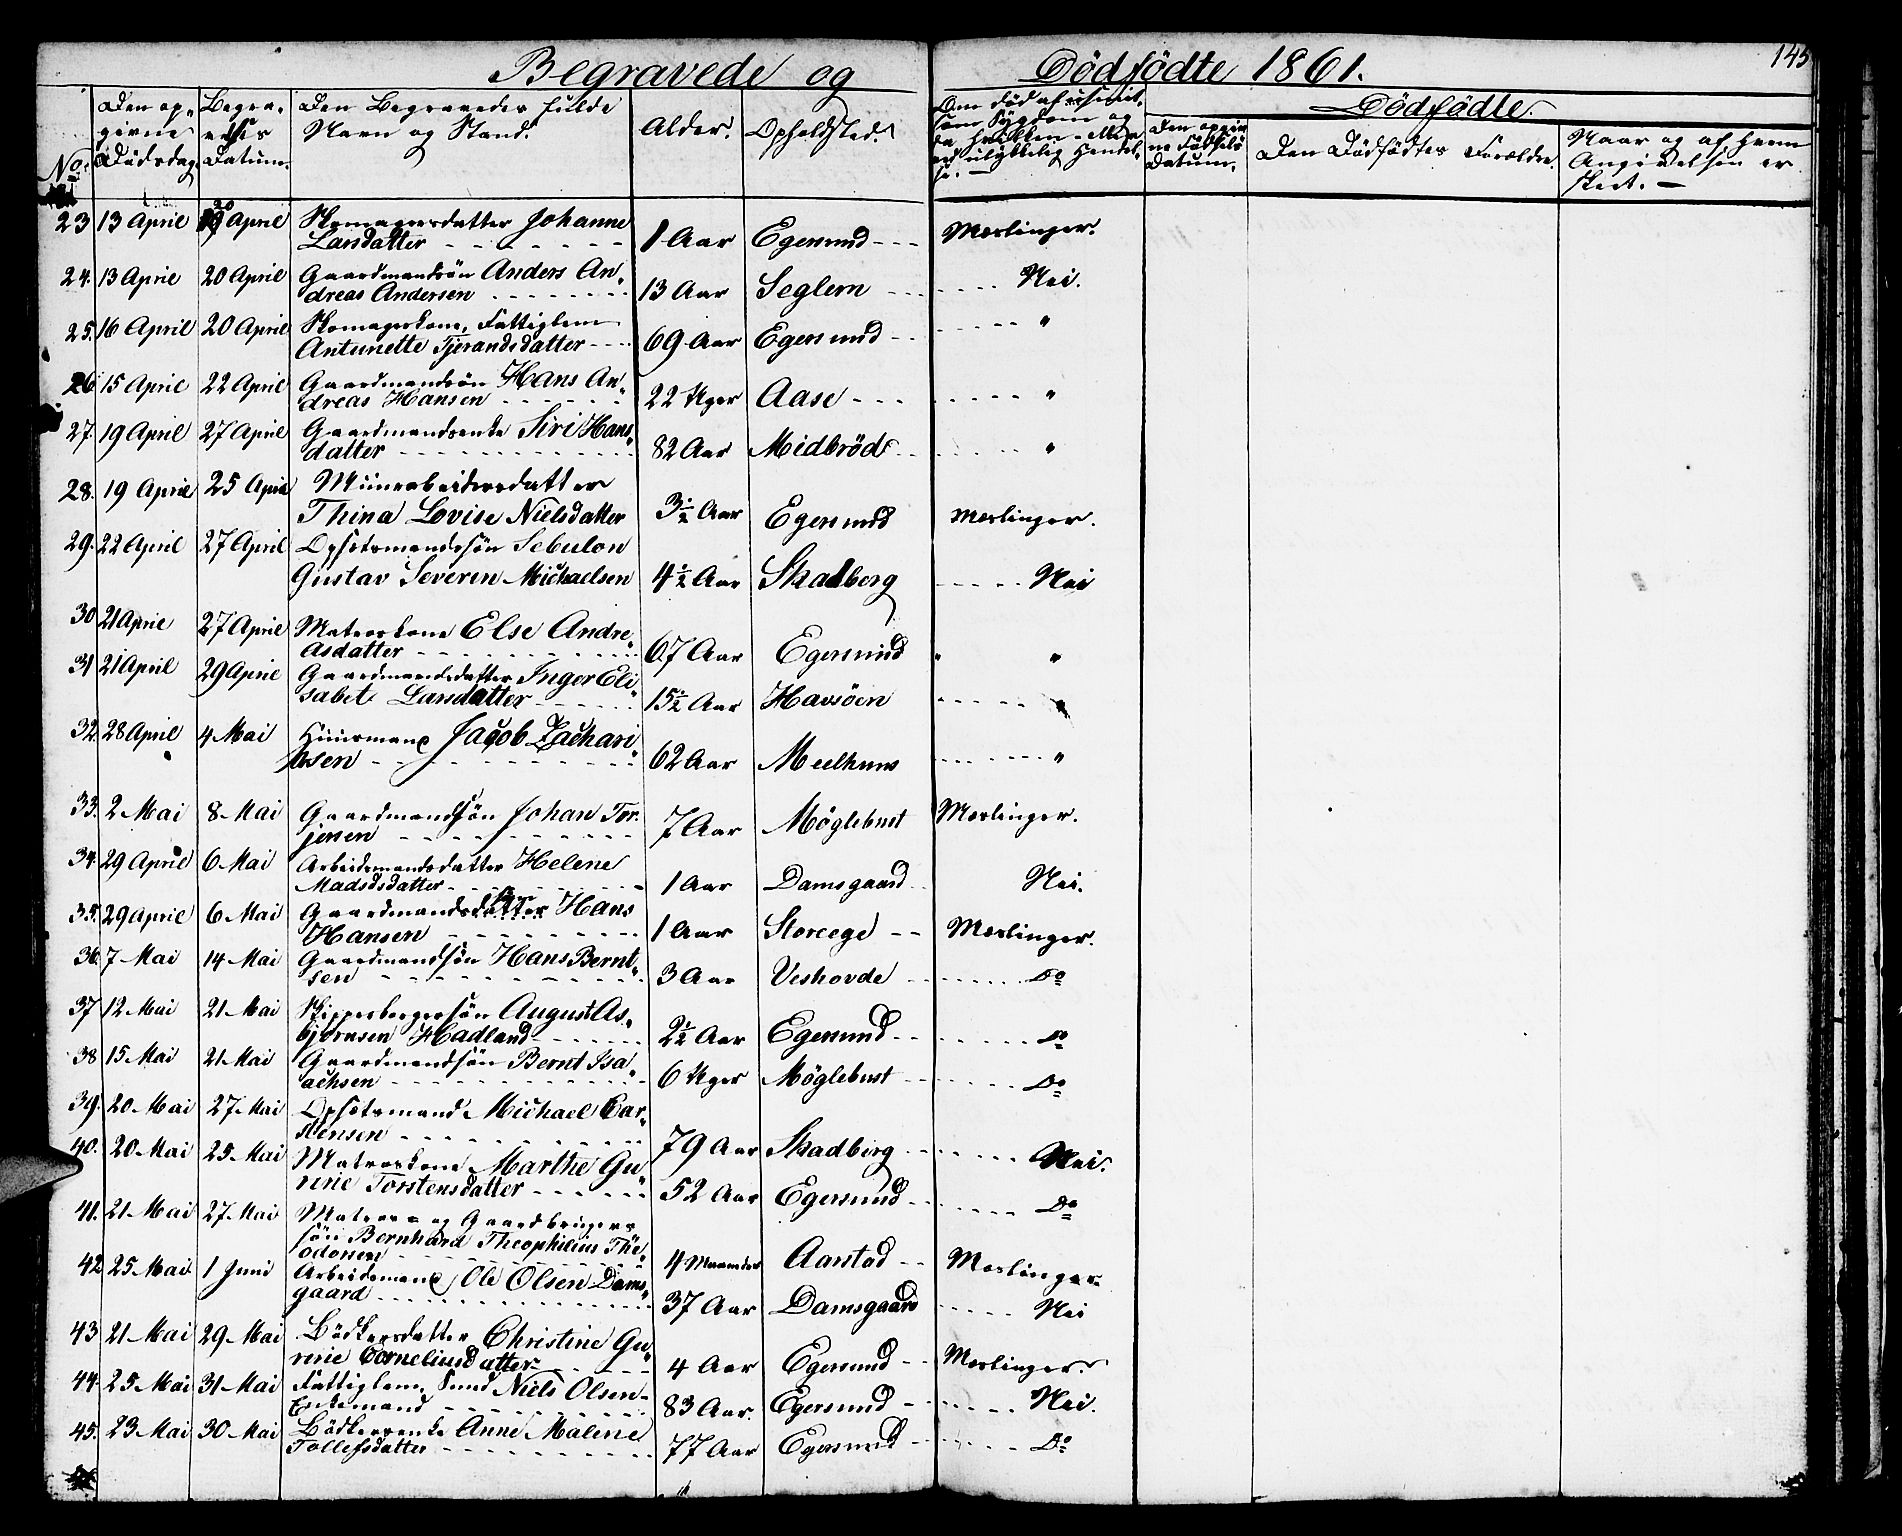 Begravede og Dödfödte 1861.
145
No.
Den op-
givne
Dödsdag.
Begra-
velses
Datum.
Den Begravedes fulde
Navn og Stand.
Alder.
Opholdsted.
Om död af
som Sygdom og
hvilken
ulykkelig Hendel-
se. —
Dödfödte.
Den opgiv-
ne Födsels
Datum.
Den Dödfödtes Forældre.
Naar og af hvem
Angivelsen er
skeet. —
23 13 April 20 April Skomagersdatter Johanne
Larsdatter 1 Aar Egersund Meslinger.
24. 13 April 20 April Gaardmandssön Anders An-
dreas Andersen 13 Aar Seglem Nei.
25. 16 April 20 April Skomagerkone, Fattiglem
Antunette Tjerandsdatter 69 Aar Egersund "
26 15 April 22 April Gaardmandssön Hans An-
dreas Hansen 22 Uger Aase "
27. 19 April 27 April Gaardmandsenke Siri Hans-
datter 82 Aar Midbröd "
28. 19 April 25 April Murarbeidersdatter
Thina Lovise Nielsdatter 3½ Aar Egersund Meslinger.
29. 22 April 27 April Opsitsmandssön Sebulon
Gustav Severin Michaelsen 4½ Aar Skadberg Nei
30 21 April 27 April Matroskone Else Andre-
asdatter 67 Aar Egersund " "
31 21 April 29 April Gaardmandsdatter Inger Eli-
sabet Larsdatter 15½ Aar Havsöen "
32. 28 April 4 Mai Huusmand Jacob Zachari-
asen 62 Aar Meelhuus "
33. 2 Mai 8 Mai Gaardmandssön Johan Tor-
jesen 7 Aar Möglebust Meslinger.
34. 29 April 6 Mai Arbeidsmandsdatter Helene
Madsdsdatter 1 Aar Damsgaard Nei.
35. 29 April 6 Mai Gaardmandsdatter sön Hans
Hansen 1 Aar Storeege Meslinger.
36. 7 Mai 14 Mai Gaardmandssön Hans Bernt-
sen 3 Aar Veshovde Do
37 12 Mai 21 Mai Skipperborgersön August As-
björnsen Hadland 2½ Aar Egersund Do
38 15 Mai 21 Mai Gaardmandssön Bernt Isa-
achsen 6 Uger Möglebust Do
39. 20 Mai 27 Mai Opsitsmand Michael Car-
stensen 79 Aar Skadberg Nei.
40. 20 Mai 25 Mai Matroskone Marthe Gu-
rine Torstensdatter 52 Aar Egersund Do
41. 21 Mai 27 Mai Matros- og Gaardbrugers
sön Bernhard Theophilius The-
odorsen 4 Maaneder Aarstad Meslinger
42 25 Mai 1 Juni Arbeidsmand Ole Olsen Dams-
gaard 37 Aar Damsgaard Nei
43 21 Mai 29 Mai Bödkersdatter Christine Gu-
rine Corneliusdatter 4 Aar Egersund Meslinger.
44. 25 Mai 31 Mai Fattiglem, Niels Olsen
Enkemand 83 Aar. Egersund Nei.
45. 23 Mai 30 Mai Bödkerenke Anne Malene
Tollefsdatter 77 Aar Egersund Do